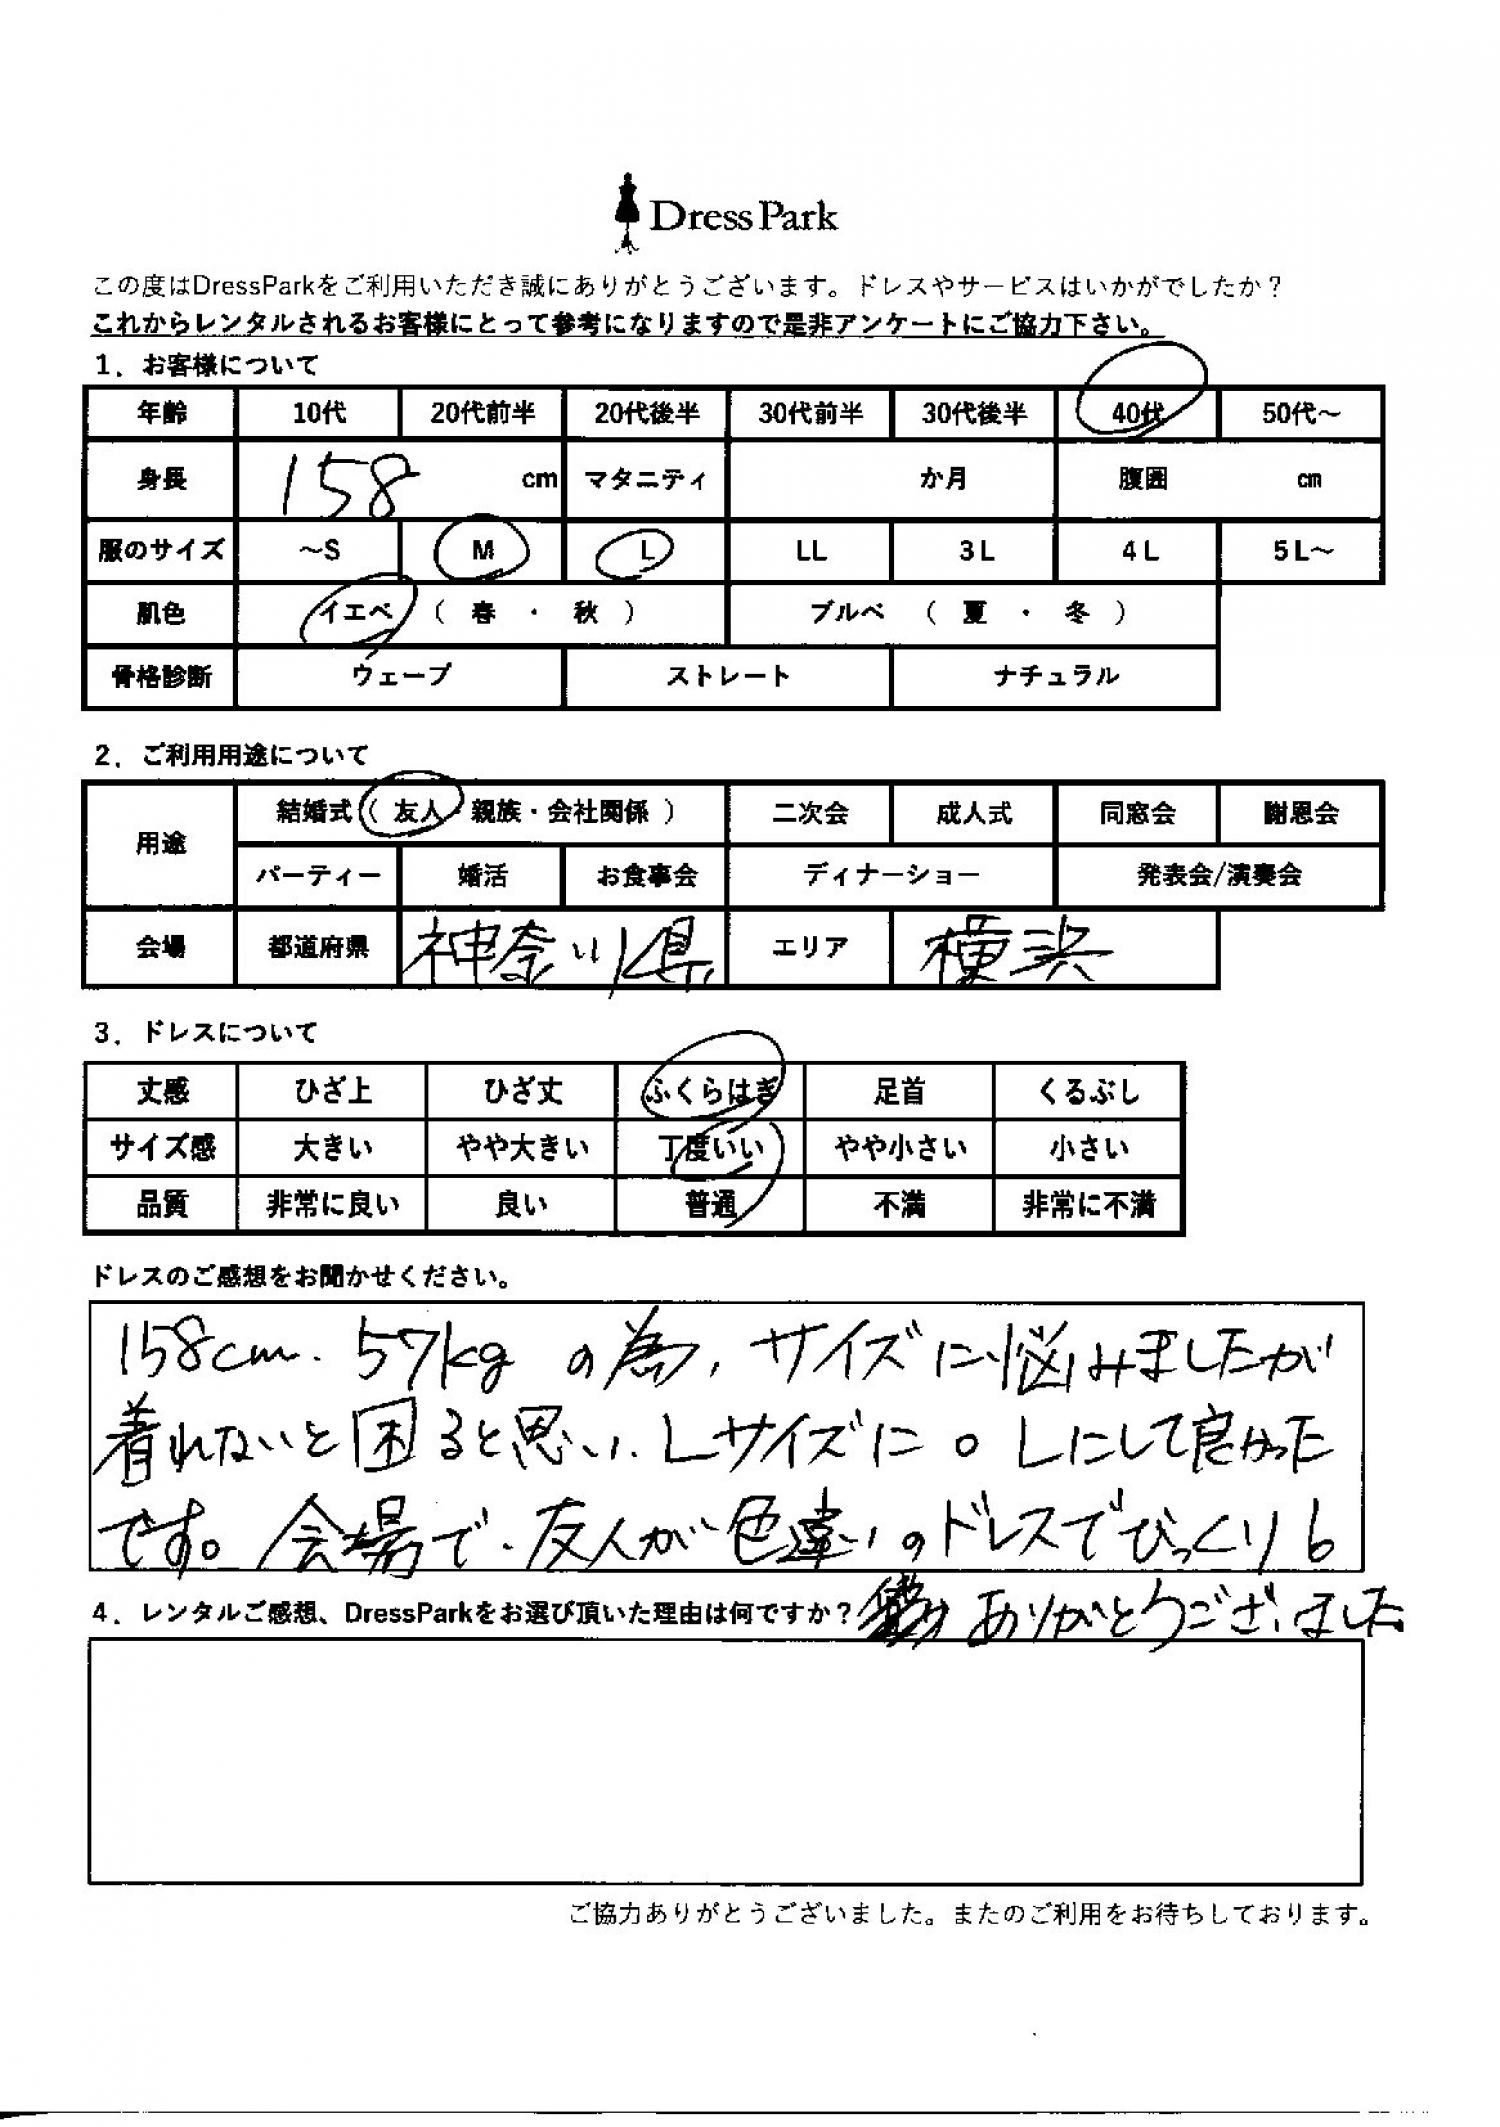 DressPark
この度はDressParkをご利用いただき誠にありがとうございます。ドレスやサービスはいかがでしたか？
これからレンタルされるお客様にとって参考になりますので是非アンケートにご協力下さい。
1．お客様について
年齢 10代 20代前半 20代後半 30代前半 30代後半 40代 50代～
身長 158 cm マタニティ か月 腹囲 cm
服のサイズ ～S M L LL 3L 4L 5L～
肌色 イエベ（ 春 ・ 秋 ） ブルベ（ 夏 ・ 冬 ）
骨格診断 ウェーブ ストレート ナチュラル
2．ご利用用途について
用途 結婚式（ 友人・親族・会社関係 ） 二次会 成人式 同窓会 謝恩会
パーティー 婚活 お食事会 ディナーショー 発表会/演奏会
会場 都道府県 神奈川県 エリア 横浜
3．ドレスについて
丈感 ひざ上 ひざ丈 ふくらはぎ 足首 くるぶし
サイズ感 大きい やや大きい 丁度いい やや小さい 小さい
品質 非常に良い 良い 普通 不満 非常に不満
ドレスのご感想をお聞かせください。
158cm. 57kg の為, サイズに悩みましたが
着れないと困ると思い. Lサイズに。Lにして良かった
です。会場で、友人が色違いのドレスでびっくり
4．レンタルご感想、DressParkをお選び頂いた理由は何ですか？ ありがとうございました
ご協力ありがとうございました。またのご利用をお待ちしております。